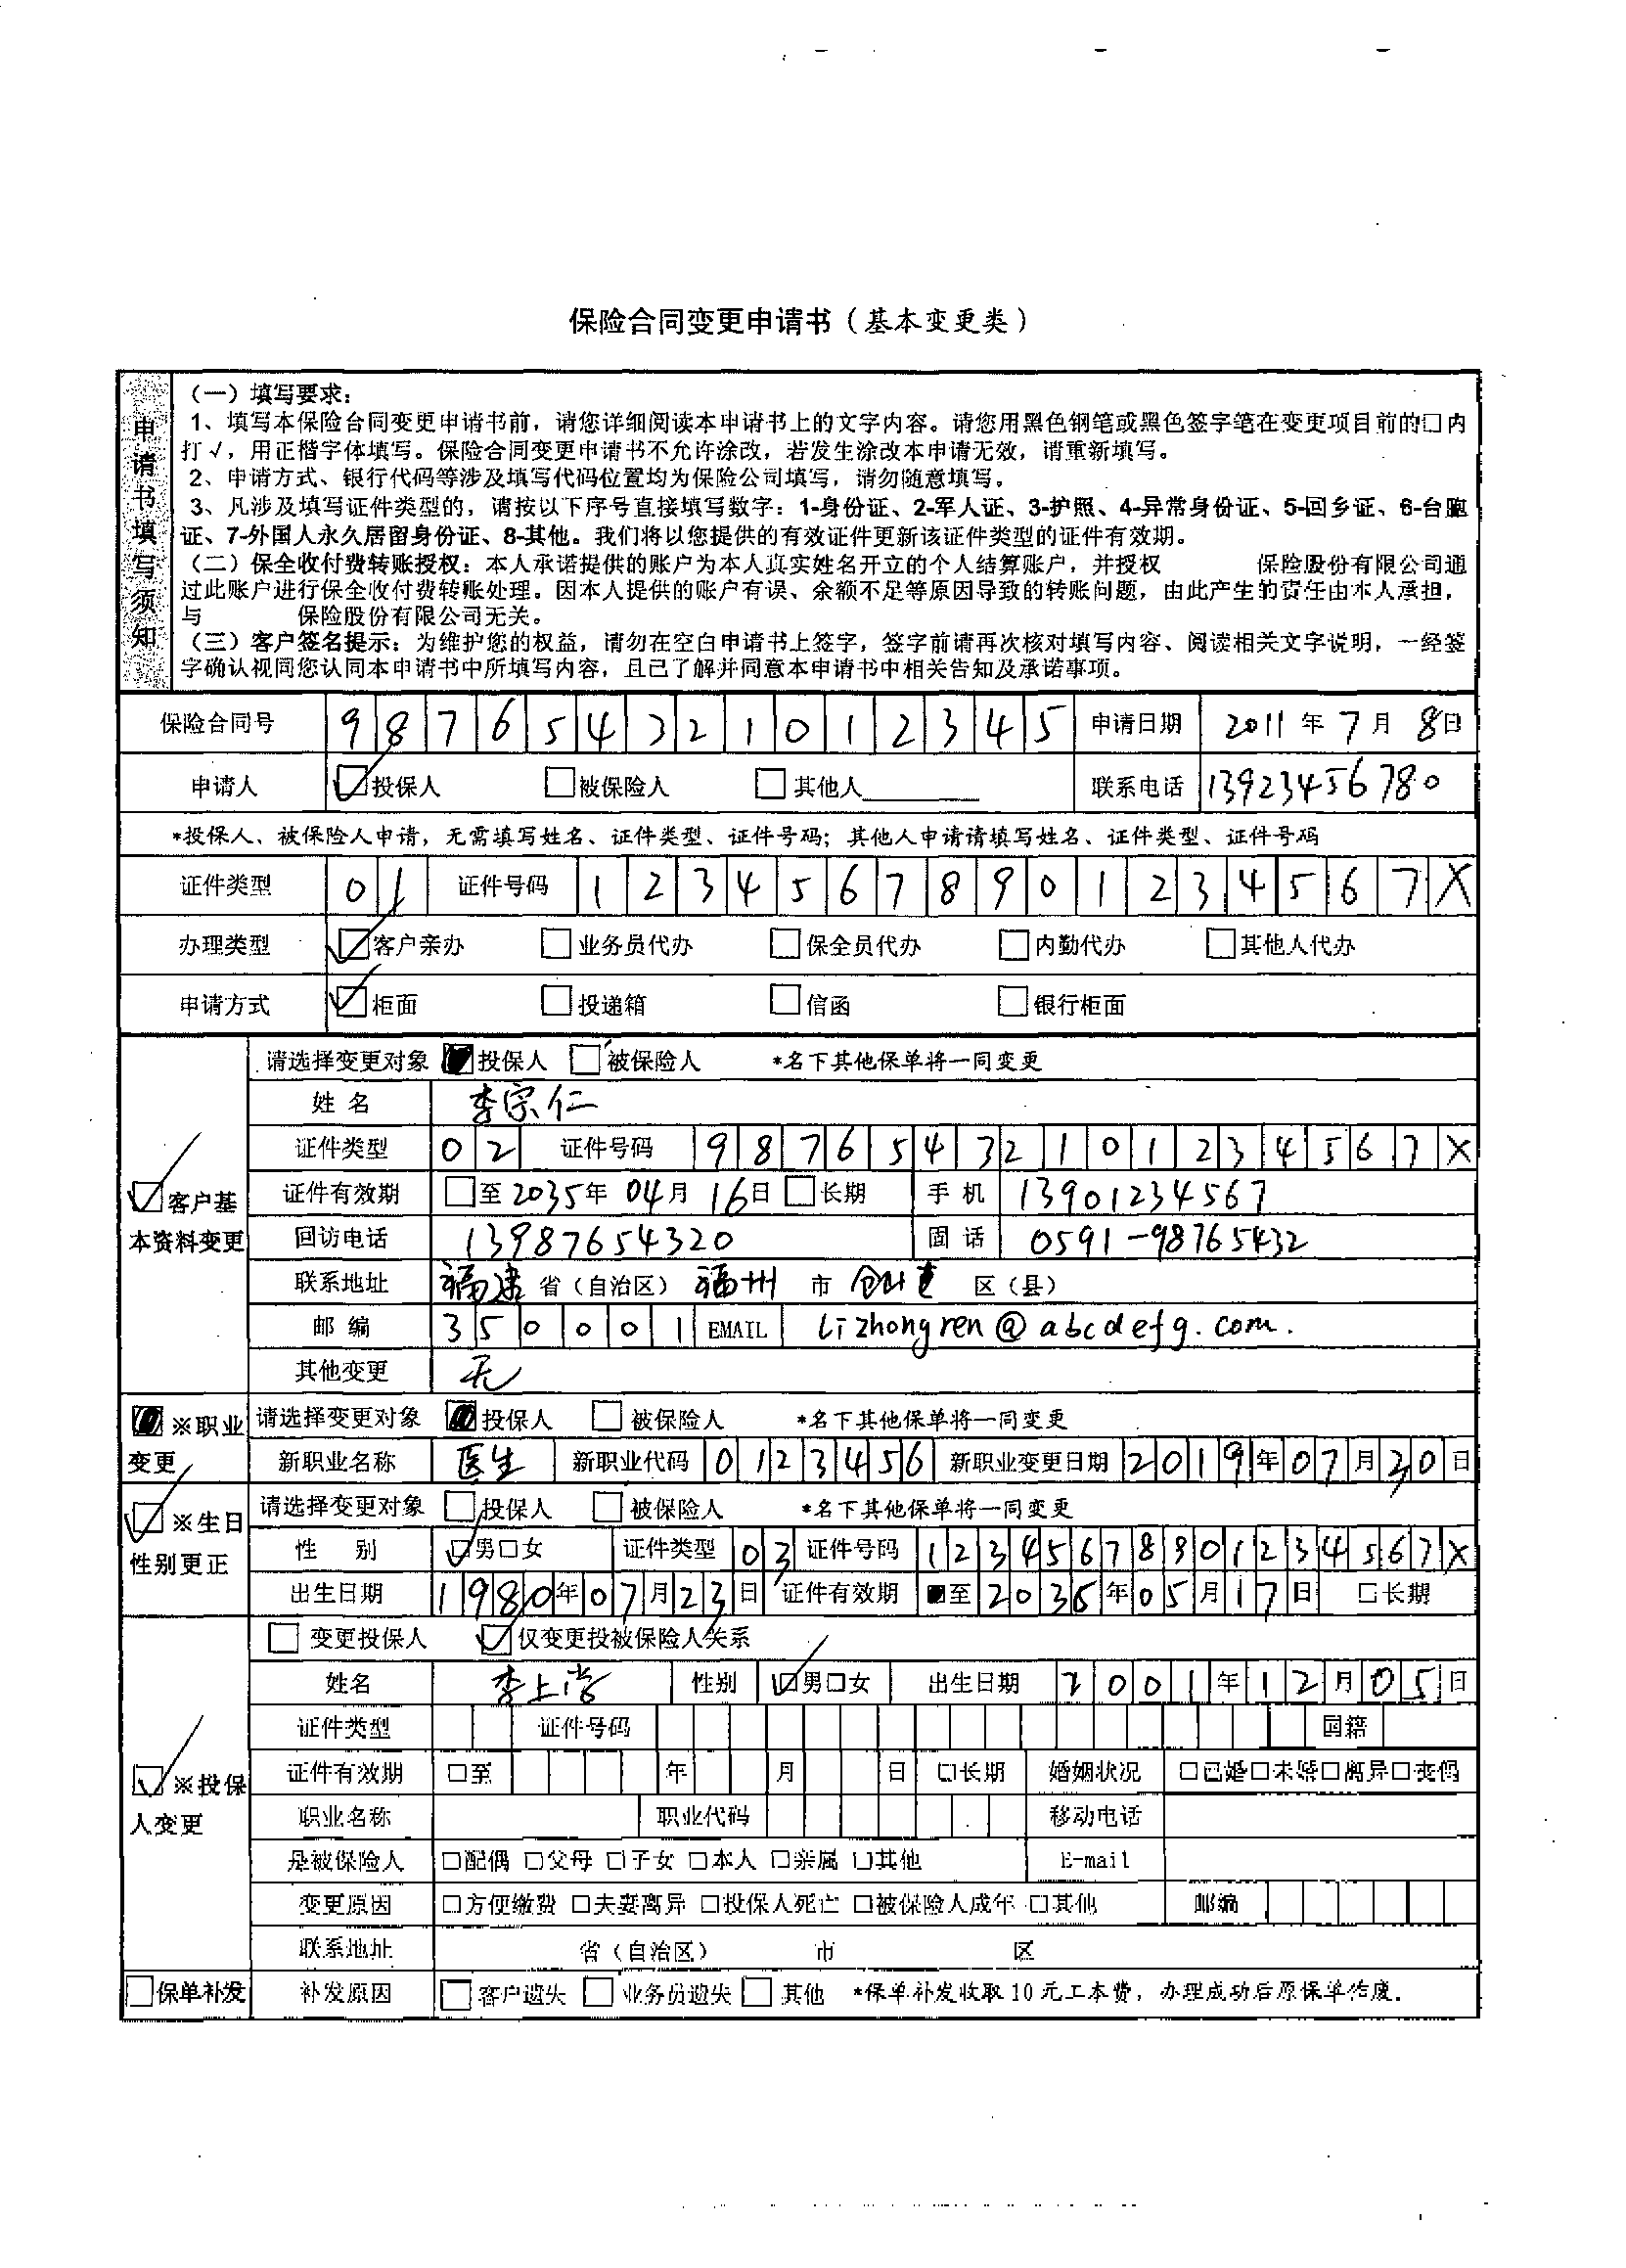 保险合同变更申请书（基本变更类）
申请书填写须知
（一）填写要求：
1、填写本保险合同变更申请书前，请您详细阅读本申请书上的文字内容。请您用黑色钢笔或黑色签字笔在变更项目前的□内
打√，用正楷字体填写。保险合同变更申请书不允许涂改，若发生涂改本申请无效，请重新填写。
2、申请方式、银行代码等涉及填写代码位置均为保险公司填写，请勿随意填写。
3、凡涉及填写证件类型的，请按以下序号直接填写数字：1-身份证、2-军人证、3-护照、4-异常身份证、5-回乡证、6-台胞
证、7-外国人永久居留身份证、8-其他。我们将以您提供的有效证件更新该证件类型的证件有效期。
（二）保全收付费转账授权：本人承诺提供的账户为本人真实姓名开立的个人结算账户，并授权 保险股份有限公司通
过此账户进行保全收付费转账处理。因本人提供的账户有误、余额不足等原因导致的转账问题，由此产生的责任由本人承担，
与 保险股份有限公司无关。
（三）客户签名提示：为维护您的权益，请勿在空白申请书上签字，签字前请再次核对填写内容、阅读相关文字说明，一经签
字确认视同您认同本申请书中所填写内容，且已了解并同意本申请书中相关告知及承诺事项。
保险合同号 987654321012345 申请日期 2011年7月8日
申请人 ☑投保人 □被保险人 □其他人 联系电话 13923456780
*投保人、被保险人申请，无需填写姓名、证件类型、证件号码；其他人申请请填写姓名、证件类型、证件号码
证件类型 01 证件号码 12345678901234567X
办理类型 ☑客户亲办 □业务员代办 □保全员代办 □内勤代办 □其他人代办
申请方式 ☑柜面 □投递箱 □信函 □银行柜面
☑客户基本资料变更
请选择变更对象 ■投保人 □被保险人 *名下其他保单将一同变更
姓名 李宗仁
证件类型 02 证件号码 98765432101234567X
证件有效期 □至2035年04月16日 □长期 手机 13901234567
回访电话 13987654320 固话 0591-98765432
联系地址 福建 省（自治区） 福州 市 仓山 区（县）
邮编 350001 EMAIL Lizhongren@abcdefg.com.
其他变更 无
■※职业变更
请选择变更对象 ■投保人 □被保险人 *名下其他保单将一同变更
新职业名称 医生 新职业代码 0123456 新职业变更日期 2019年07月20日
☑※生日性别更正
请选择变更对象 □投保人 □被保险人 *名下其他保单将一同变更
性别 ☑男□女 证件类型 03 证件号码 12345678901234567X
出生日期 1980年07月23日 证件有效期 ■至2036年05月17日 □长期
☑※投保人变更
□变更投保人 ☑仅变更投被保险人关系
姓名 李上尚 性别 ☑男□女 出生日期 2001年12月05日
证件类型 证件号码 国籍
证件有效期 □至 年 月 日 □长期 婚姻状况 □已婚□未婚□离异□丧偶
职业名称 职业代码 移动电话
是被保险人 □配偶 □父母 □子女 □本人 □亲属 □其他 E-mail
变更原因 □方便缴费 □夫妻离异 □投保人死亡 □被保险人成年 □其他 邮编
联系地址 省（自治区） 市 区
□保单补发 补发原因 □客户遗失 □业务员遗失 □其他 *保单补发收取10元工本费，办理成功后原保单作废。